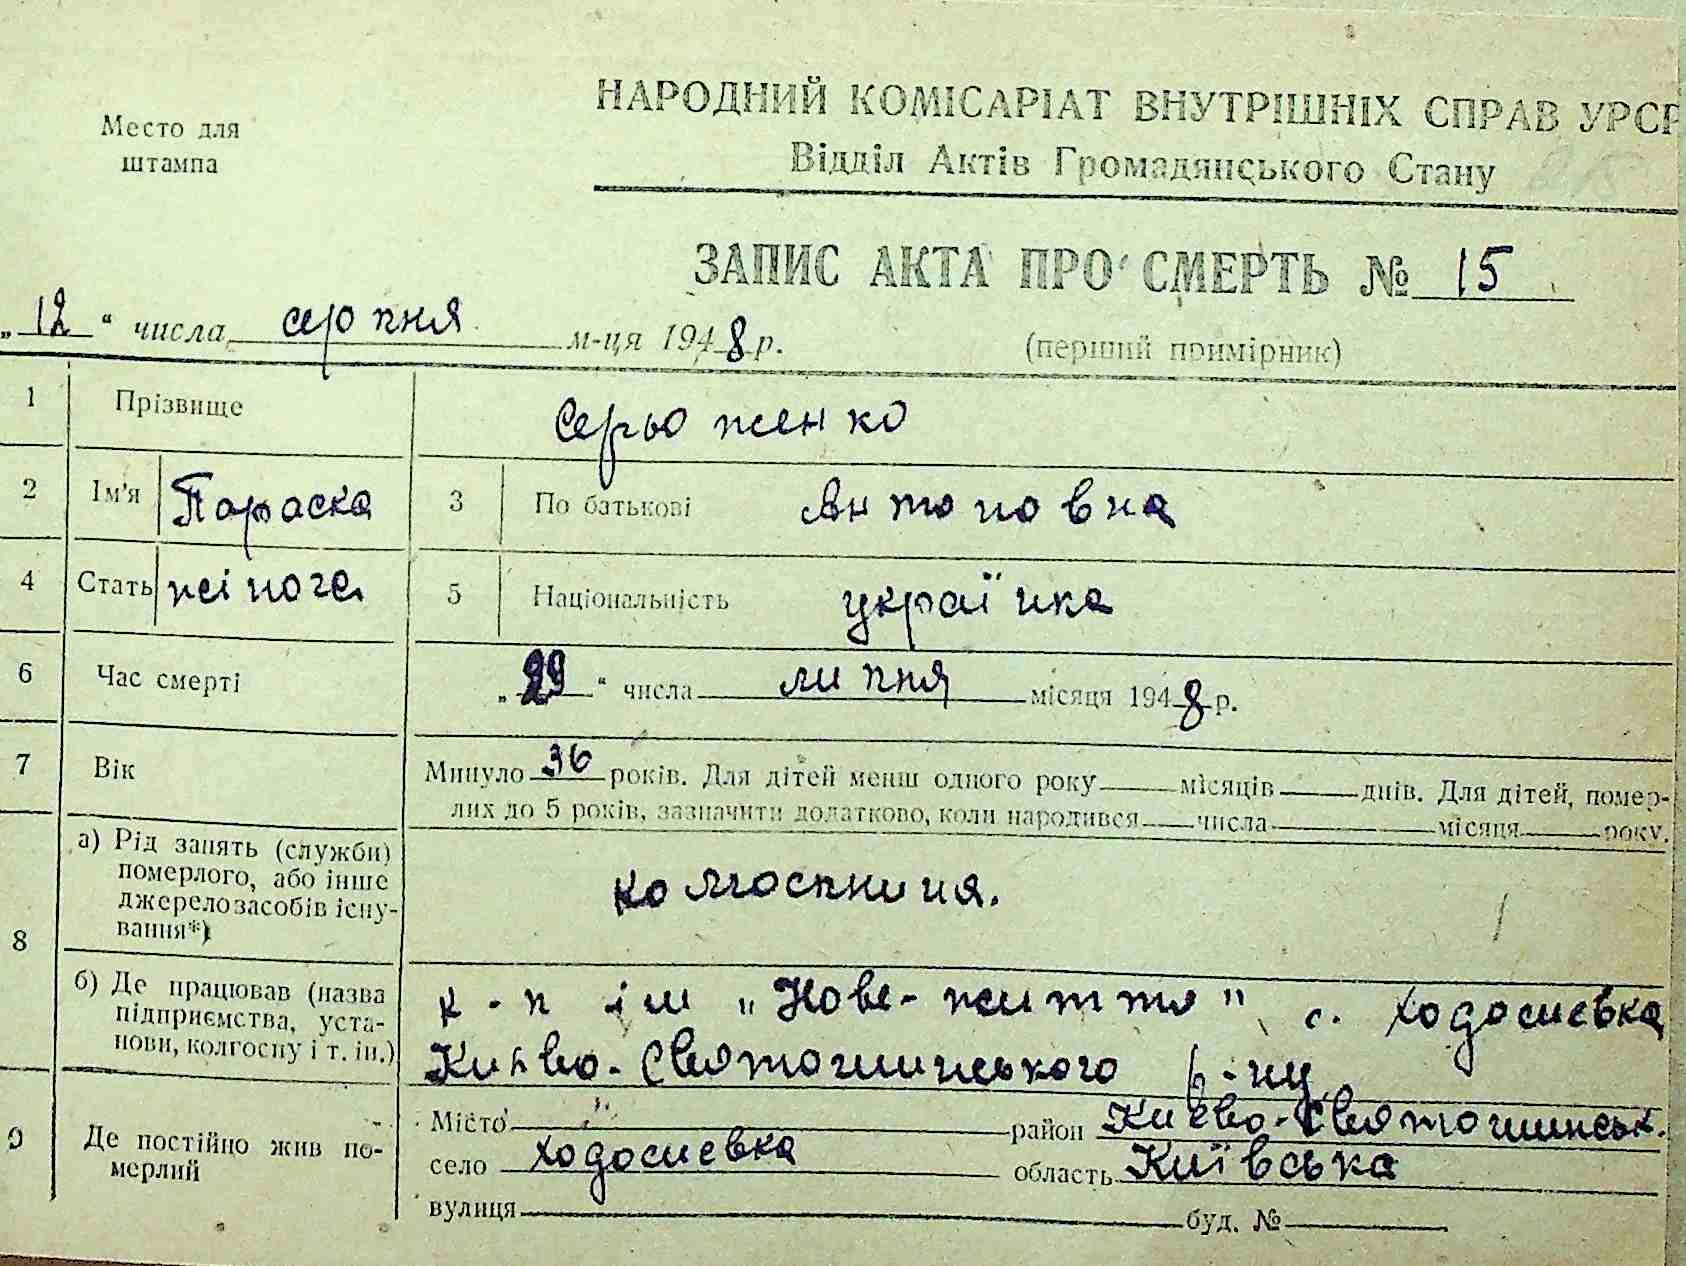 Место для
штампа
НАРОДНИЙ КОМІСАРІАТ ВНУТРІШНІХ СПРАВ УРСР
Відділ Актів Громадянського Стану
ЗАПИС АКТА ПРО СМЕРТЬ № 15
„12“ числа серпня м-ця 1948 р.
(перший примірник)
1 Прізвище Серьоженко
2 Ім'я Параска 3 По батькові Антоновна
4 Стать жіноча 5 Національність українка
6 Час смерті „29“ числа липня місяця 1948 р.
7 Вік Минуло 36 років. Для дітей менш одного року місяців днів. Для дітей, помер-
лих до 5 років, зазначити додатково, коли народився числа місяця року.
8 а) Рід занять (служби)
померлого, або інше
джерело засобів існу-
вання*)
колгоспниця.
б) Де працював (назва
підприємства, уста-
нови, колгоспу і т. ін.)
к-п ім „Нове-життя" с. Ходосиевка
Києво-Святошинського р-ну
9 Де постійно жив по-
мерлий
Місто район Києво-Святошинськ.
село Ходосиевка область Київська
вулиця буд. №